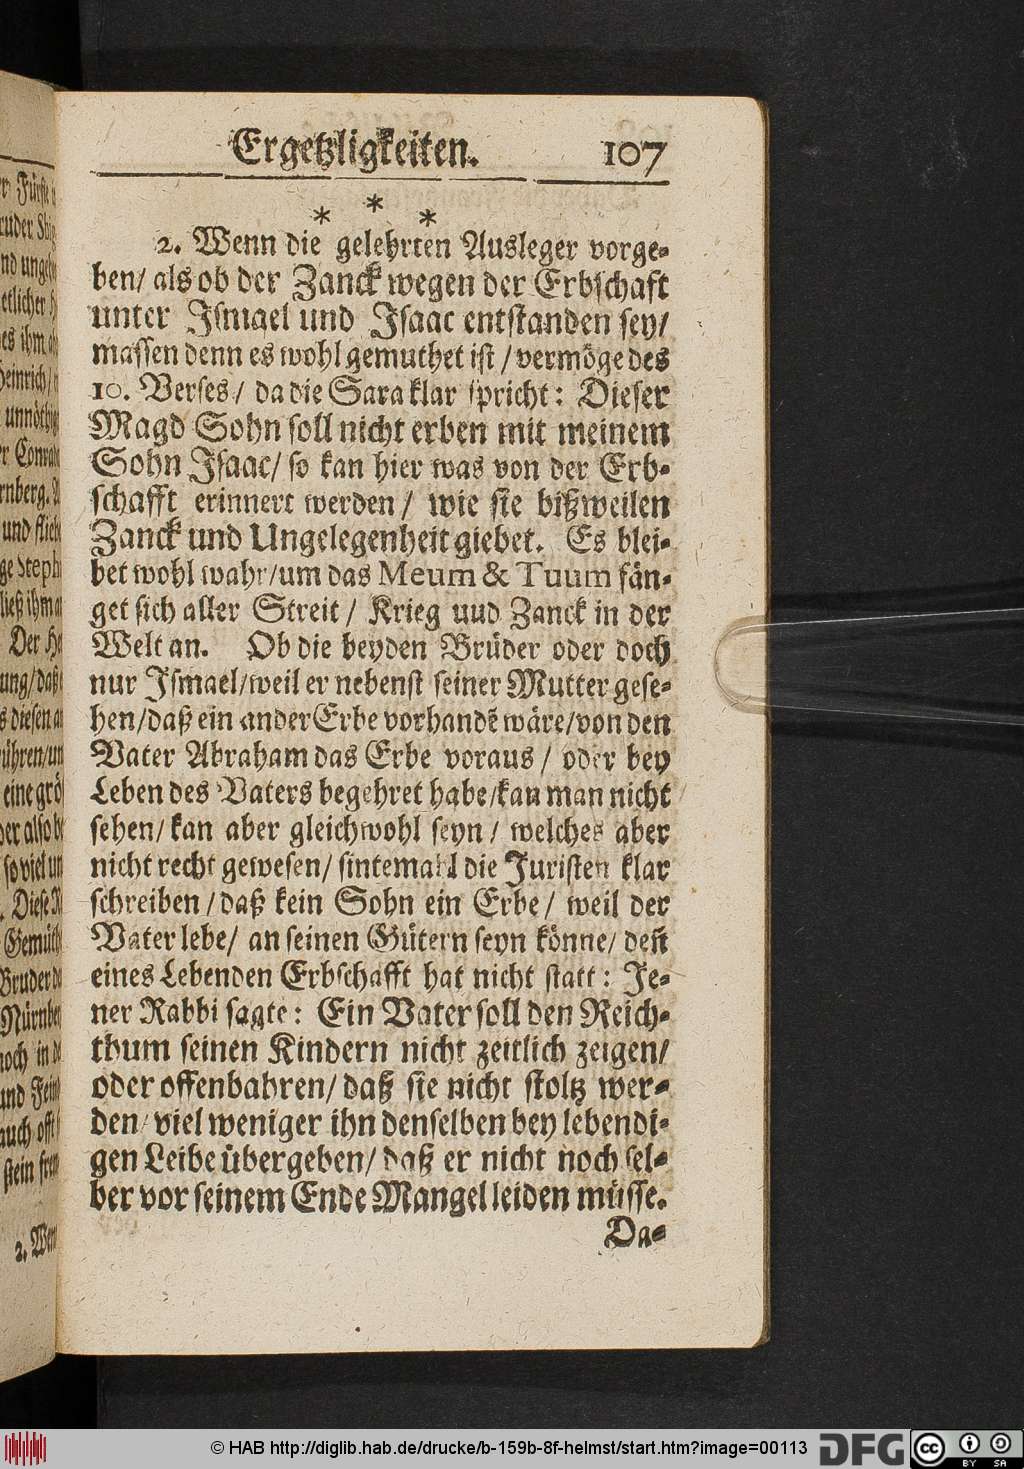 Ergetzligkeiten. 107
* * *
2. Wenn die gelehrten Ausleger vorge-
ben/ als ob der Zanck wegen der Erbschaft
unter Ismael und Isaac entstanden sey/
massen denn es wohl gemuthet ist / vermöge des
10. Verses / da die Sara klar spricht: Dieser
Magd Sohn soll nicht erben mit meinem
Sohn Isaac/ so kan hier was von der Erb-
schafft erinnert werden / wie sie bißweilen
Zanck und Ungelegenheit giebet. Es blei-
bet wohl wahr/um das Meum & Tuum fän-
get sich aller Streit / Krieg uud Zanck in der
Welt an. Ob die beyden Brüder oder doch
nur Ismael/weil er nebenst seiner Mutter gese-
hen/daß ein ander Erbe vorhandē wäre/von den
Vater Abraham das Erbe voraus / oder bey
Leben des Vaters begehret habe/kan man nicht
sehen/ kan aber gleichwohl seyn / welches aber
nicht recht gewesen/ sintemahl die Juristen klar
schreiben / daß kein Sohn ein Erbe / weil der
Vater lebe/ an seinen Gütern seyn könne/ deñ
eines Lebenden Erbschafft hat nicht statt: Je-
ner Rabbi sagte: Ein Vater soll den Reich-
thum seinen Kindern nicht zeitlich zeigen/
oder offenbahren/ daß sie nicht stoltz wer-
den/ viel weniger ihn denselben bey lebendi-
gen Leibe übergeben/ daß er nicht noch sel-
ber vor seinem Ende Mangel leiden müsse.
Da-
2. Wen
© HAB http://diglib.hab.de/drucke/b-159b-8f-helmst/start.htm?image=00113
DFG
cc BY SA